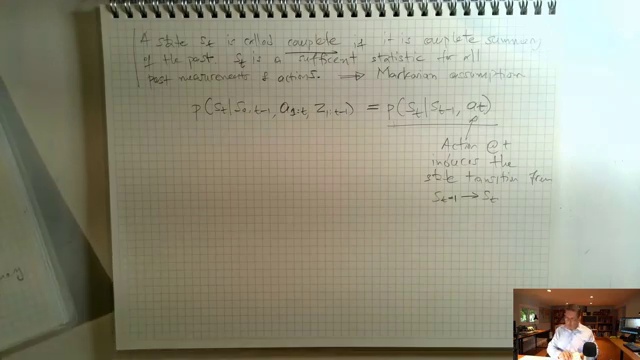 A state St is called complete if it is complete summary
if the past St is a sufficent statistic for all
past measurements & actions. ⟹ Markovian assumption
p(St|S0:t-1, a1:t, Z1:t-1) = p(St|St-1, at)
Action @t
induces the
state transition from
St-1 → St